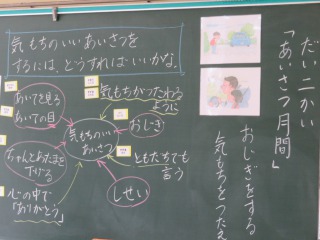 だい二かい
「あいさつ月間」
おじぎをする
気もちをつたえ
気もちのいいあいさつを
するには、どうすればいいかな。
あいてを見る
あいての目
気もちがつたわる
ように
おじぎ
気もちのいい
あいさつ
ちゃんとあたまを
下げる
ともだちでも
言う
しせい
心の中で
「ありがとう」